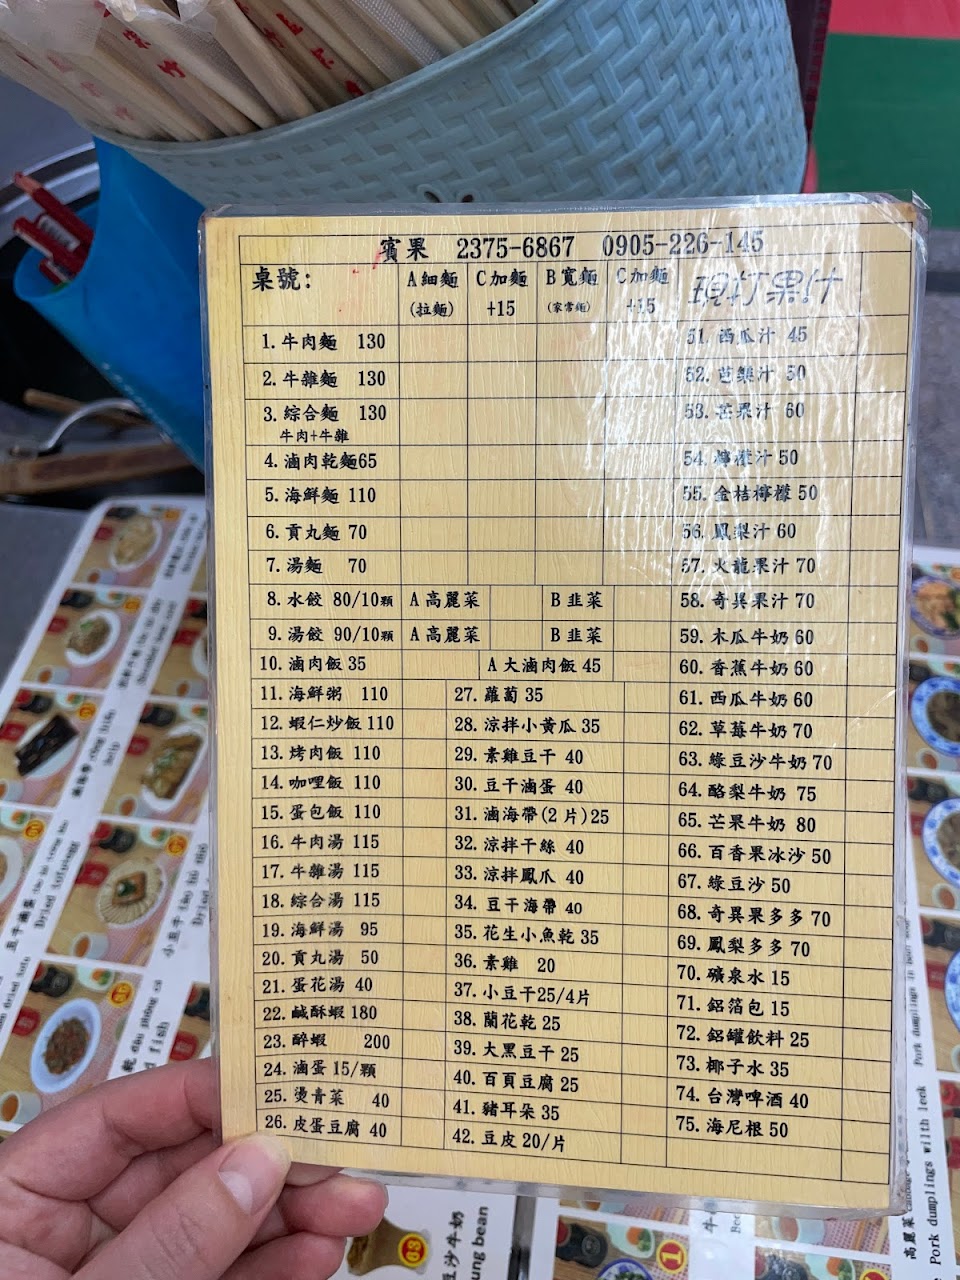 賓果 2375-6867 0905-226-145
桌號: A細麵 (拉麵) C加麵 +15 B寬麵 (家常麵) C加麵 +15 現打果汁
1.牛肉麵 130 51.西瓜汁 45
2.牛雜麵 130 52.芭樂汁 50
3.綜合麵 130 53.芒果汁 60
牛肉+牛雜
4.滷肉乾麵65 54.檸檬汁50
5.海鮮麵 110 55.金桔檸檬 50
6.貢丸麵 70 56.鳳梨汁 60
7.湯麵 70 57.火龍果汁 70
8.水餃 80/10顆 A高麗菜 B韭菜 58.奇異果汁 70
9.湯餃 90/10顆 A高麗菜 B韭菜 59.木瓜牛奶 60
10.滷肉飯 35 A大滷肉飯 45 60.香蕉牛奶 60
11.海鮮粥 110 27.蘿蔔 35 61.西瓜牛奶 60
12.蝦仁炒飯 110 28.涼拌小黃瓜 35 62.草莓牛奶 70
13.烤肉飯 110 29.素雞豆干 40 63.綠豆沙牛奶 70
14.咖哩飯 110 30.豆干滷蛋 40 64.酪梨牛奶 75
15.蛋包飯 110 31.滷海帶(2片)25 65.芒果牛奶 80
16.牛肉湯 115 32.涼拌干絲 40 66.百香果冰沙 50
17.牛雜湯 115 33.涼拌鳳爪 40 67.綠豆沙 50
18.綜合湯 115 34.豆干海帶 40 68.奇異果多多 70
19.海鮮湯 95 35.花生小魚乾 35 69.鳳梨多多 70
20.貢丸湯 50 36.素雞 20 70.礦泉水 15
21.蛋花湯 40 37.小豆干25/4片 71.鋁箔包 15
22.鹹酥蝦 180 38.蘭花乾 25 72.鋁罐飲料 25
23.醉蝦 200 39.大黑豆干 25 73.椰子水 35
24.滷蛋 15/顆 40.百頁豆腐 25 74.台灣啤酒 40
25.燙青菜 40 41.豬耳朵 35 75.海尼根 50
26.皮蛋豆腐 40 42.豆皮 20/片
豆沙牛奶
ung bean
63
1
高麗菜
Pork dumplings with leek